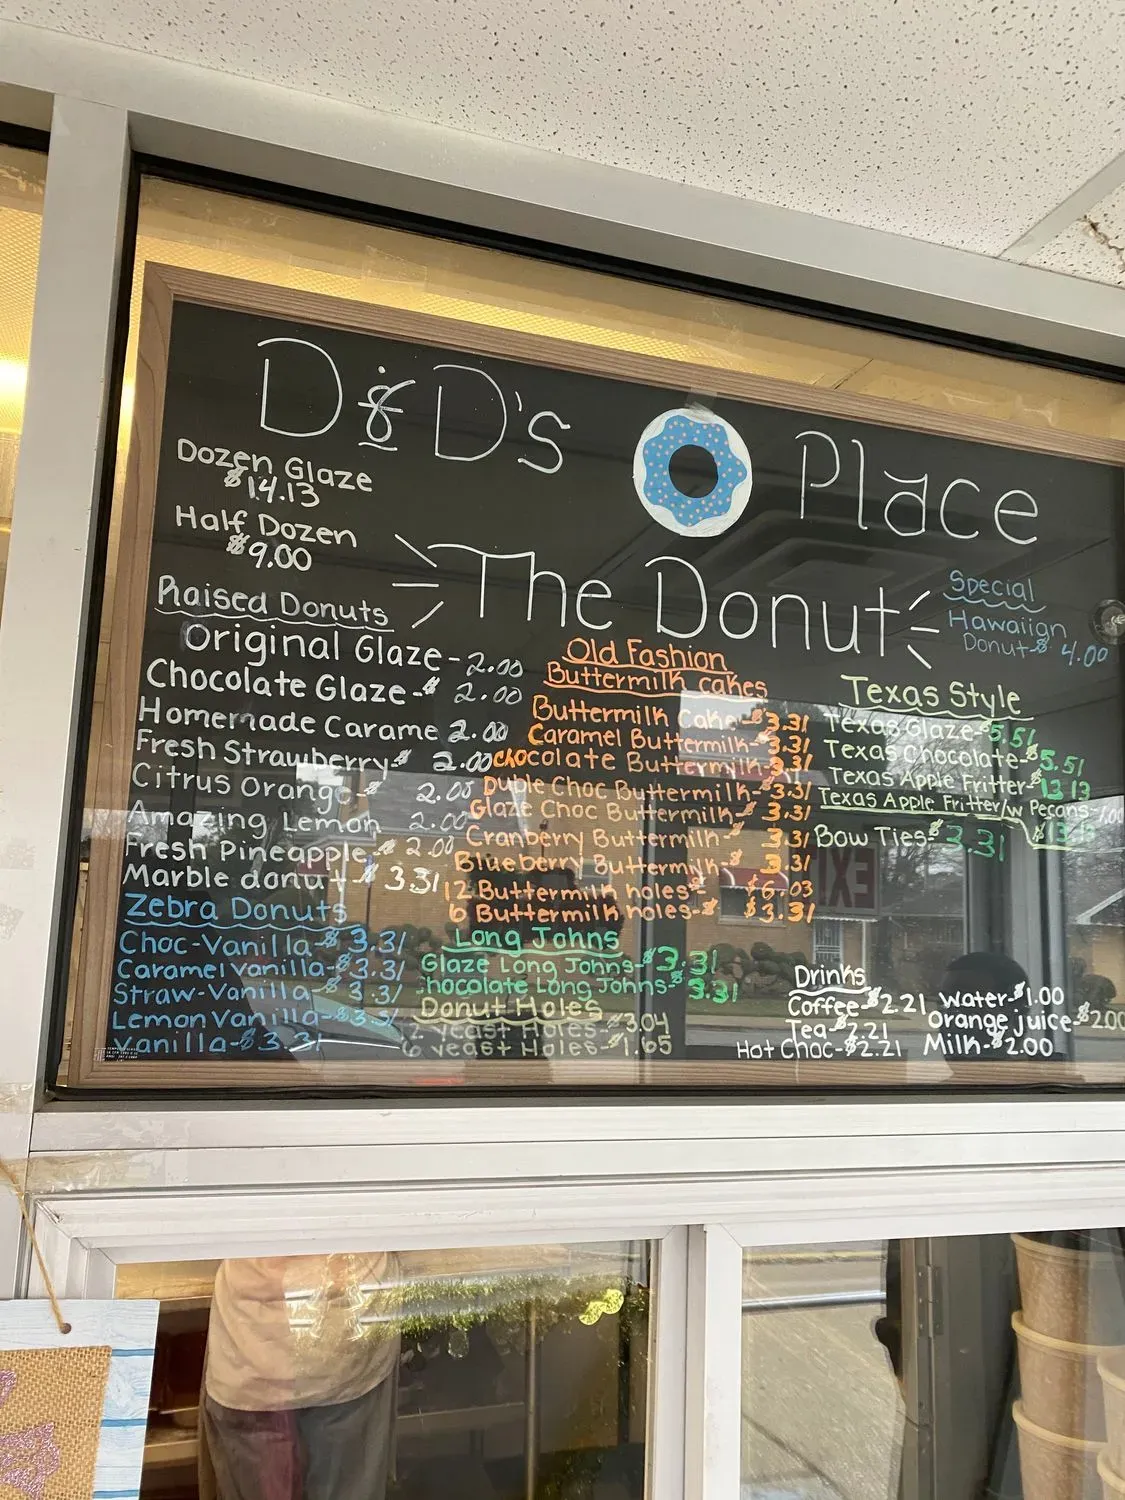 D & D's Place
The Donut
Dozen Glaze
$14.13
Half Dozen
$9.00
Raised Donuts
Original Glaze-2.00
Chocolate Glaze-$ 2.00
Homemade Carame 2.00
Fresh Strawberry-$ 2.00
Citrus Orange-$ 2.00
Amazing Lemon 2.00
Fresh Pineapple-$ 2.00
Marble donut-$ 3.31
Zebra Donuts
Choc-Vanilla-$ 3.31
Caramel Vanilla-$3.31
Straw-Vanilla-$ 3.31
Lemon Vanilla-$3.31
Vanilla-$3.31
Old Fashion
Buttermilk cakes
Buttermilk Cake-$3.31
Caramel Buttermilk-$3.31
Chocolate Buttermilk-$3.31
Duble Choc Buttermilk-$3.31
Glaze Choc Buttermilk-$ 3.31
Cranberry Buttermilk-$ 3.31
Blueberry Buttermilk-$ 3.31
12 Buttermilk holes-$ $6.03
6 Buttermilk holes-$ $3.31
Long Johns
Glaze Long Johns-$3.31
Chocolate Long Johns-$3.31
Donut Holes
12 yeast Holes-$3.04
6 yeast Holes-$1.65
Special
Hawaiign
Donut-$ 4.00
Texas Style
Texas Glaze-$5.51
Texas Chocolate-$5.51
Texas Apple Fritter-$13.13
Texas Apple Fritter/w Pecans-1.00
Bow Ties-$3.31
Drinks
Coffee-$2.21
Tea-$2.21
Hot Choc-$2.21
Water-$1.00
Orange juice-$2.00
Milk-$2.00
EXI